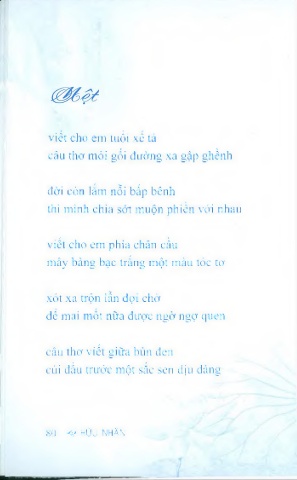 Một
viết cho em tuổi xế tà
câu thơ mỏi gối đường xa gập ghềnh
đời còn lắm nỗi bấp bênh
thì mình chia sớt muộn phiền với nhau
viết cho em phía chân cầu
mây bàng bạc trắng một màu tóc tơ
xót xa trộn lẫn đợi chờ
để mai mốt nữa được ngờ ngợ quen
câu thơ viết giữa bùn đen
cúi đầu trước một sắc sen dịu dàng
HỮU NHÂN